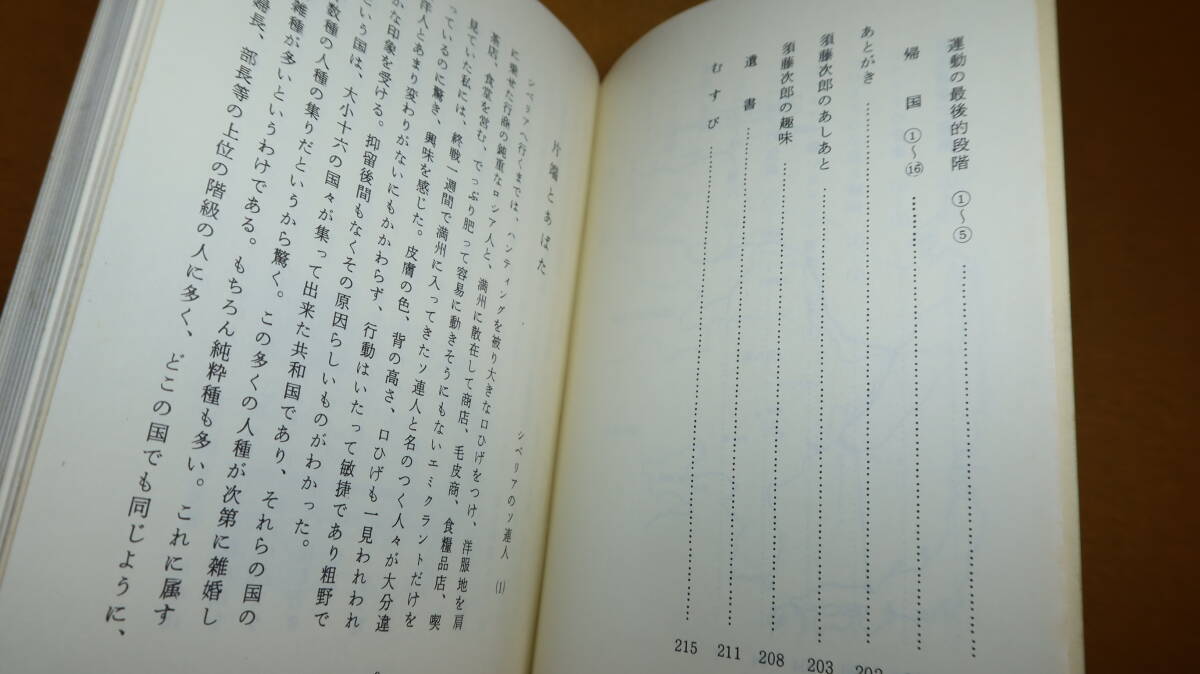 運動の最後的段階 ①〜⑤
帰国 ①〜⑯
あとがき
須藤次郎のあしあと 203
須藤次郎の趣味 208
遺書 211
むすび 215
片端とあばた
シベリアのソ連人 (1)
シベリアへ行くまでは、ハンティングを被り大きな口ひげをつけ、洋服地を肩
に乗せた行商の鈍重なロシア人と、満州に散在して商店、毛皮商、食糧品店、喫
茶店、食堂を営む、でっぷり肥って容易に動きそうにもないエミグラントだけを
見ていた私には、終戦一週間で満州に入ってきたソ連人と名のつく人々が大分違
っているのに驚き、興味を感じた。皮膚の色、背の高さ、口ひげも一見われわれ
洋人とあまり変わりがないにもかかわらず、行動はいたって敏捷であり粗野で
かな印象を受ける。抑留後間もなくその原因らしいものがわかった。
という国は、大小十六の国々が集って出来た共和国であり、それらの国の
数種の人種の集りだというから驚く。この多くの人種が次第に雑婚し
雑種が多いというわけである。もちろん純粋種も多い。これに属す
長、部長等の上位の階級の人に多く、どこの国でも同じように、